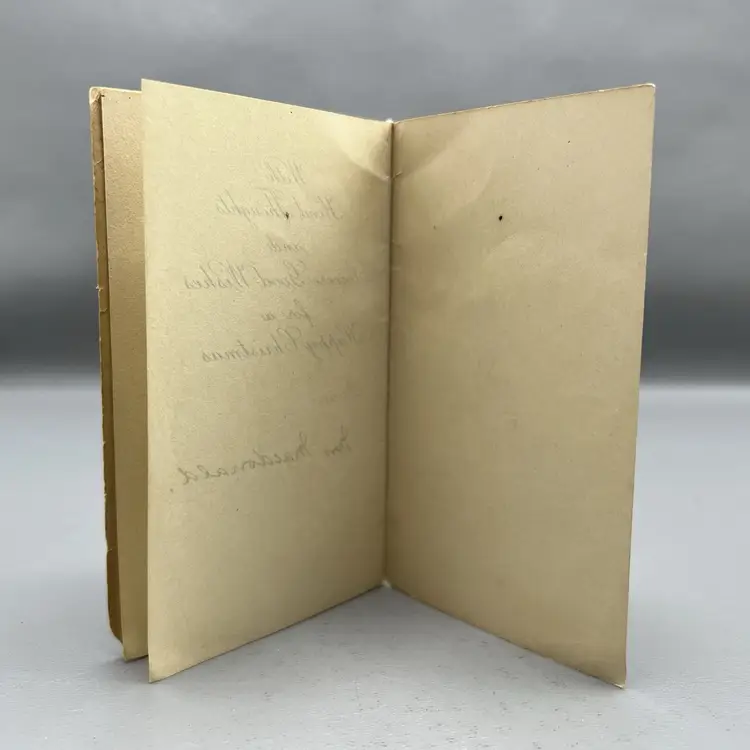 With
Kind Thoughts
and
Good Wishes
for a
Happy Christmas
Macdonald.